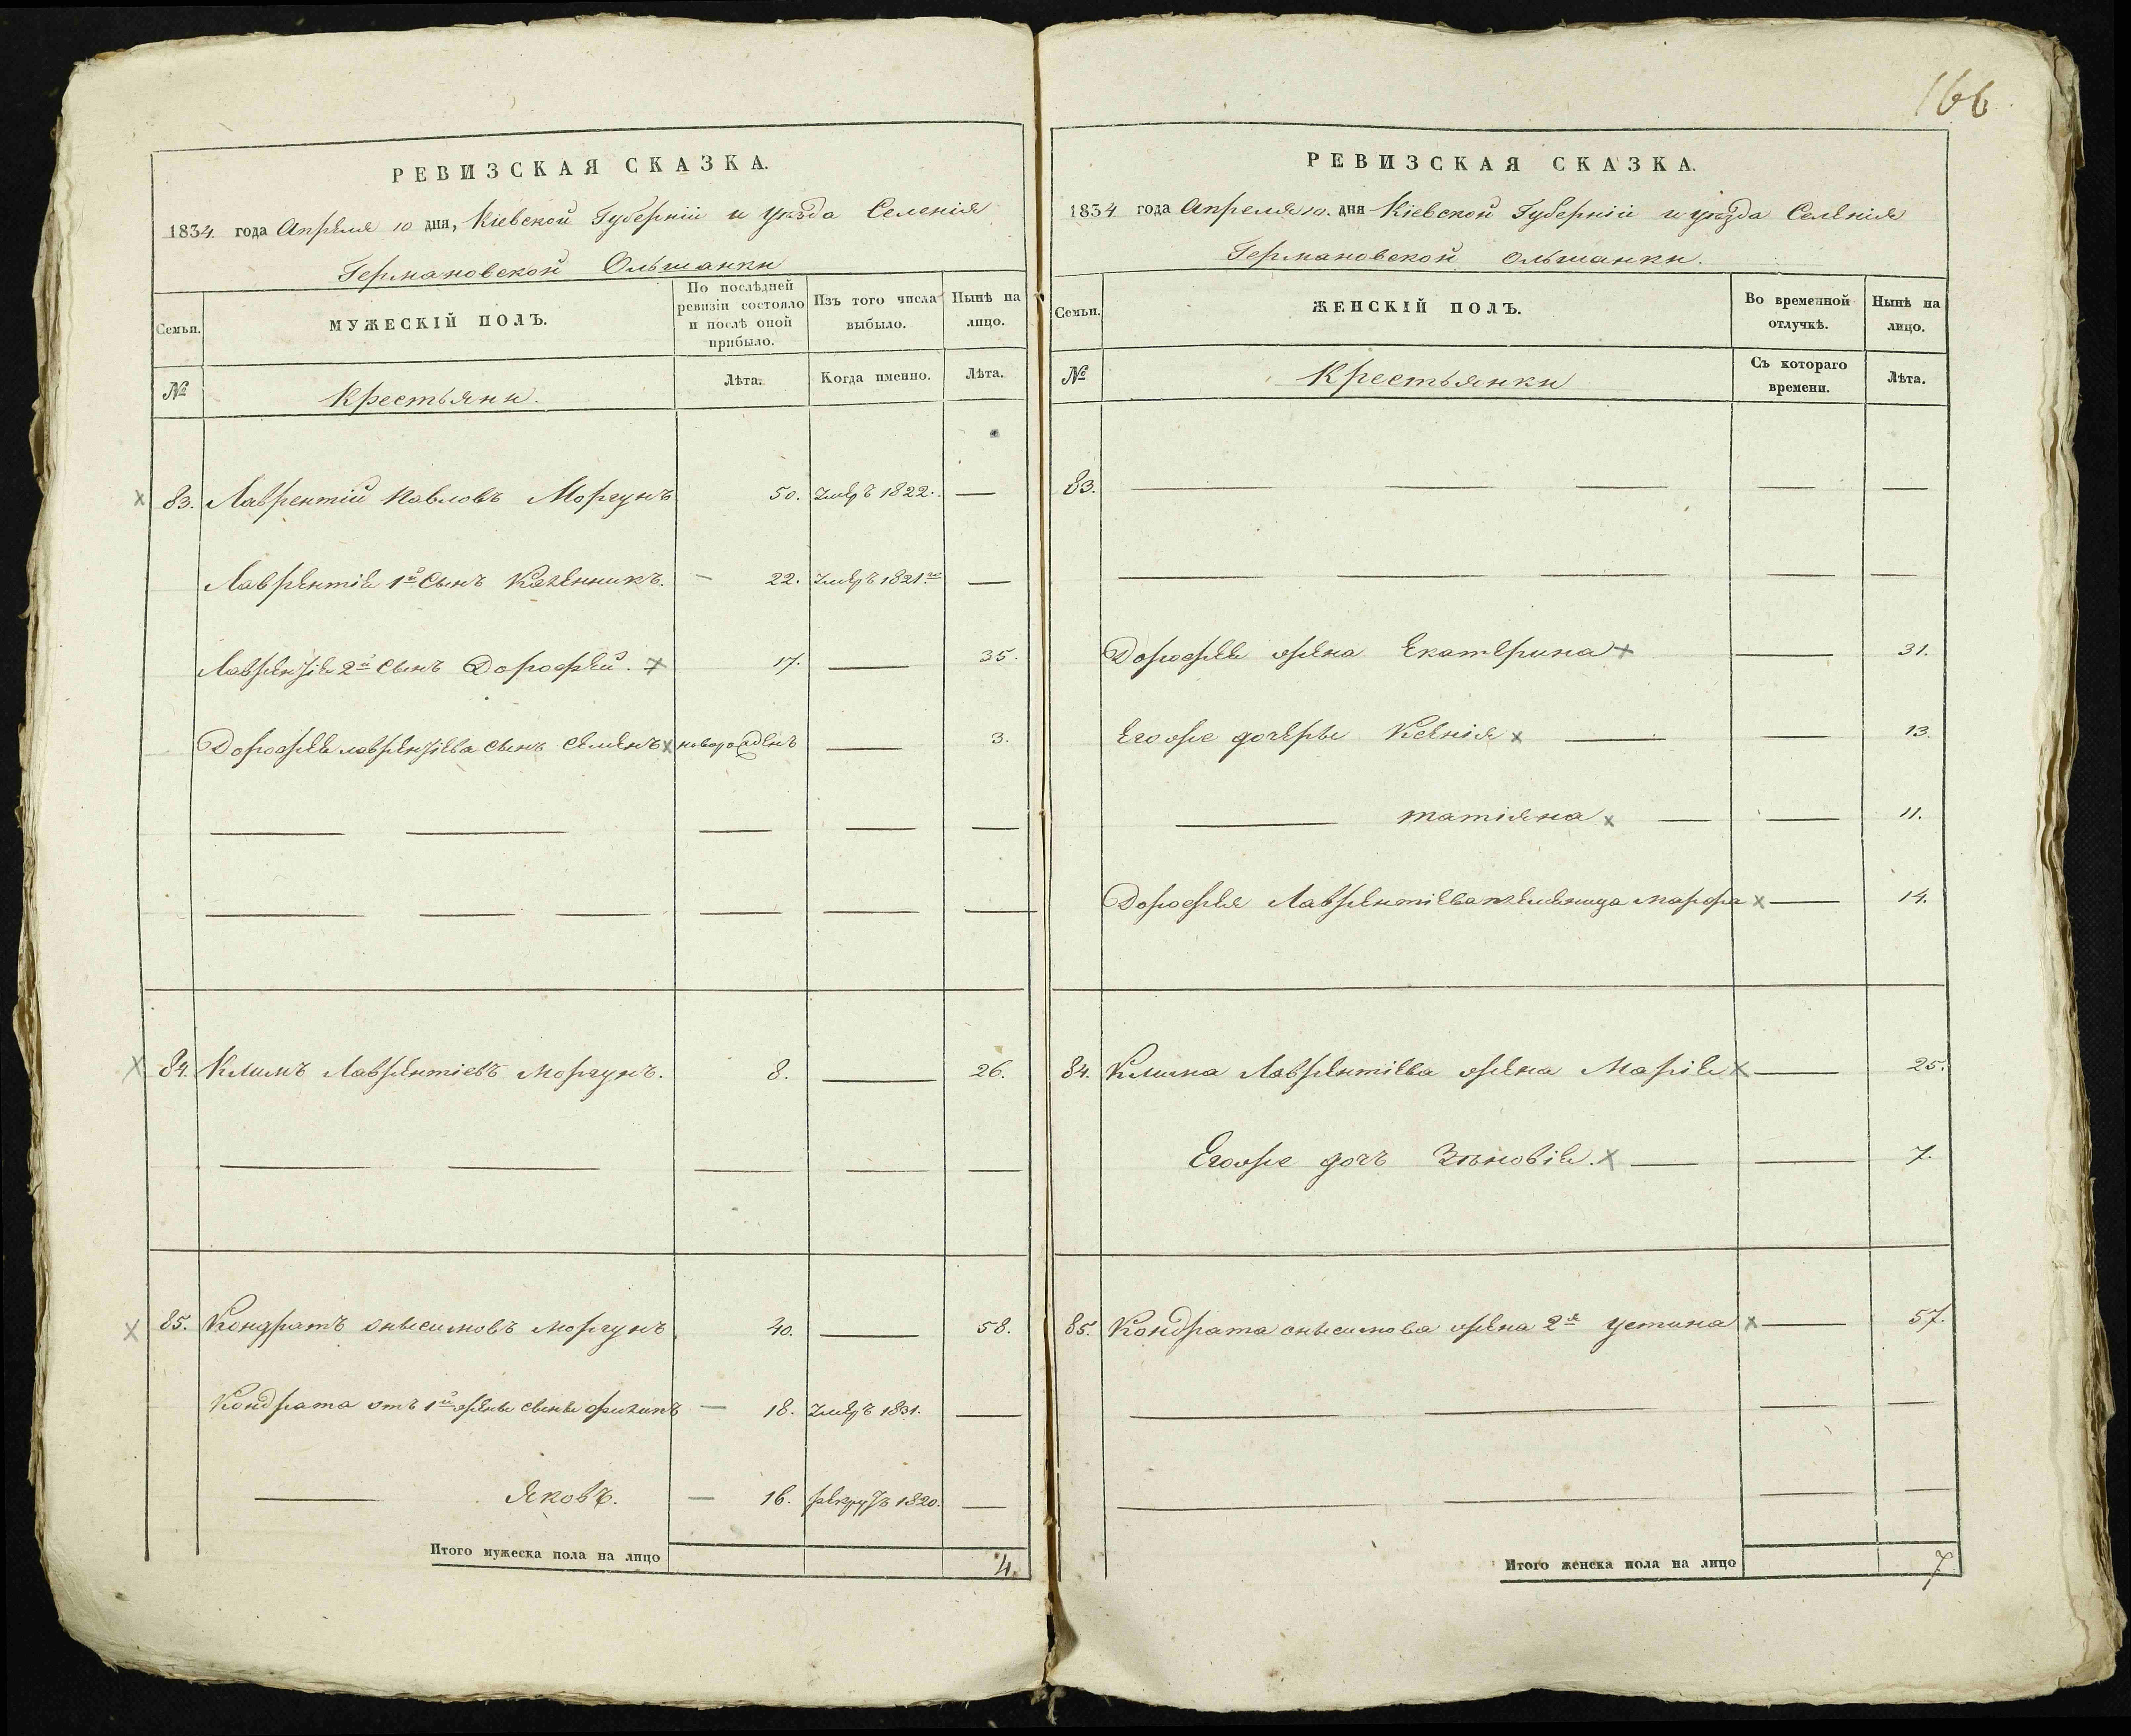 РЕВИЗСКАЯ СКАЗКА.
1834. года Апреля 10 дня, Кіевской Губерніи и уѣзда Селенія
Германовской Ольшанки
Семьи.
МУЖЕСКІЙ ПОЛЪ.
По послѣдней ревизіи состояло и послѣ оной прибыло.
Изъ того числа выбыло.
Нынѣ на лицо.
№
Крестьяни.
Лѣта.
Когда именно.
Лѣта.
83. Лаврентій Павловъ Моргунъ 50. умеръ 1822. —
Лаврентія 1й сынъ Калѣнникъ. — 22. умеръ 1821го —
Лаврентія 2й сынъ Дорофей. x 17. — 35.
Дорофея Лаврентіева сынъ Семенъ x новорожденъ — 3.
84. Климъ Лаврентіевъ Моргунъ. 8. — 26.
85. Кондратъ Онысимовъ Моргунъ 40. — 58.
Кондрата отъ 1й жены сыны Филипъ — 18. умеръ 1831. —
— Яковъ. — 16. рекрутъ 1820. —
Итого мужеска пола на лицо 4.
166
РЕВИЗСКАЯ СКАЗКА.
1834 года Апреля 10. дня Кіевской Губерніи и уѣзда Селенія
Германовской Ольшанки.
Семьи.
ЖЕНСКІЙ ПОЛЪ.
Во временной отлучкѣ.
Нынѣ на лицо.
№
Крестьянки
Съ котораго времени.
Лѣта.
83. — — — — —
Дорофея жена Екатерина x — 31.
Егоже дочеры Ксенія x — — 13.
— татіяна x — — 11.
Дорофея Лаврентіева племеница Марфа x — 14.
84. Клима Лаврентіева жена Марія x — 25.
Егоже дочъ Зѣновія. x — — 7.
85. Кондрата онысимова жена 2я Устина x — 57.
Итого женска пола на лицо 7